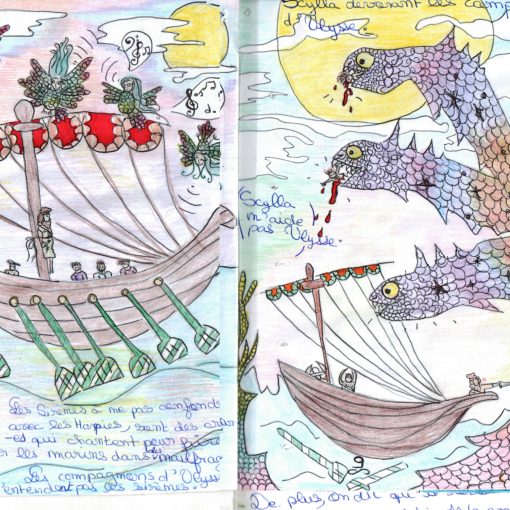 Les Sirènes à ne pas confond
avec les Harpies, sont des
-es qui chantent pour
er les marins dans les naufrag
Les compagnons d'Ulyss
n'entendent pas les sirènes.
Scylla dévorant les comp
d'Ulysse.
Scylla
m'aide
pas Ulysse.
De plus, on dit qu'